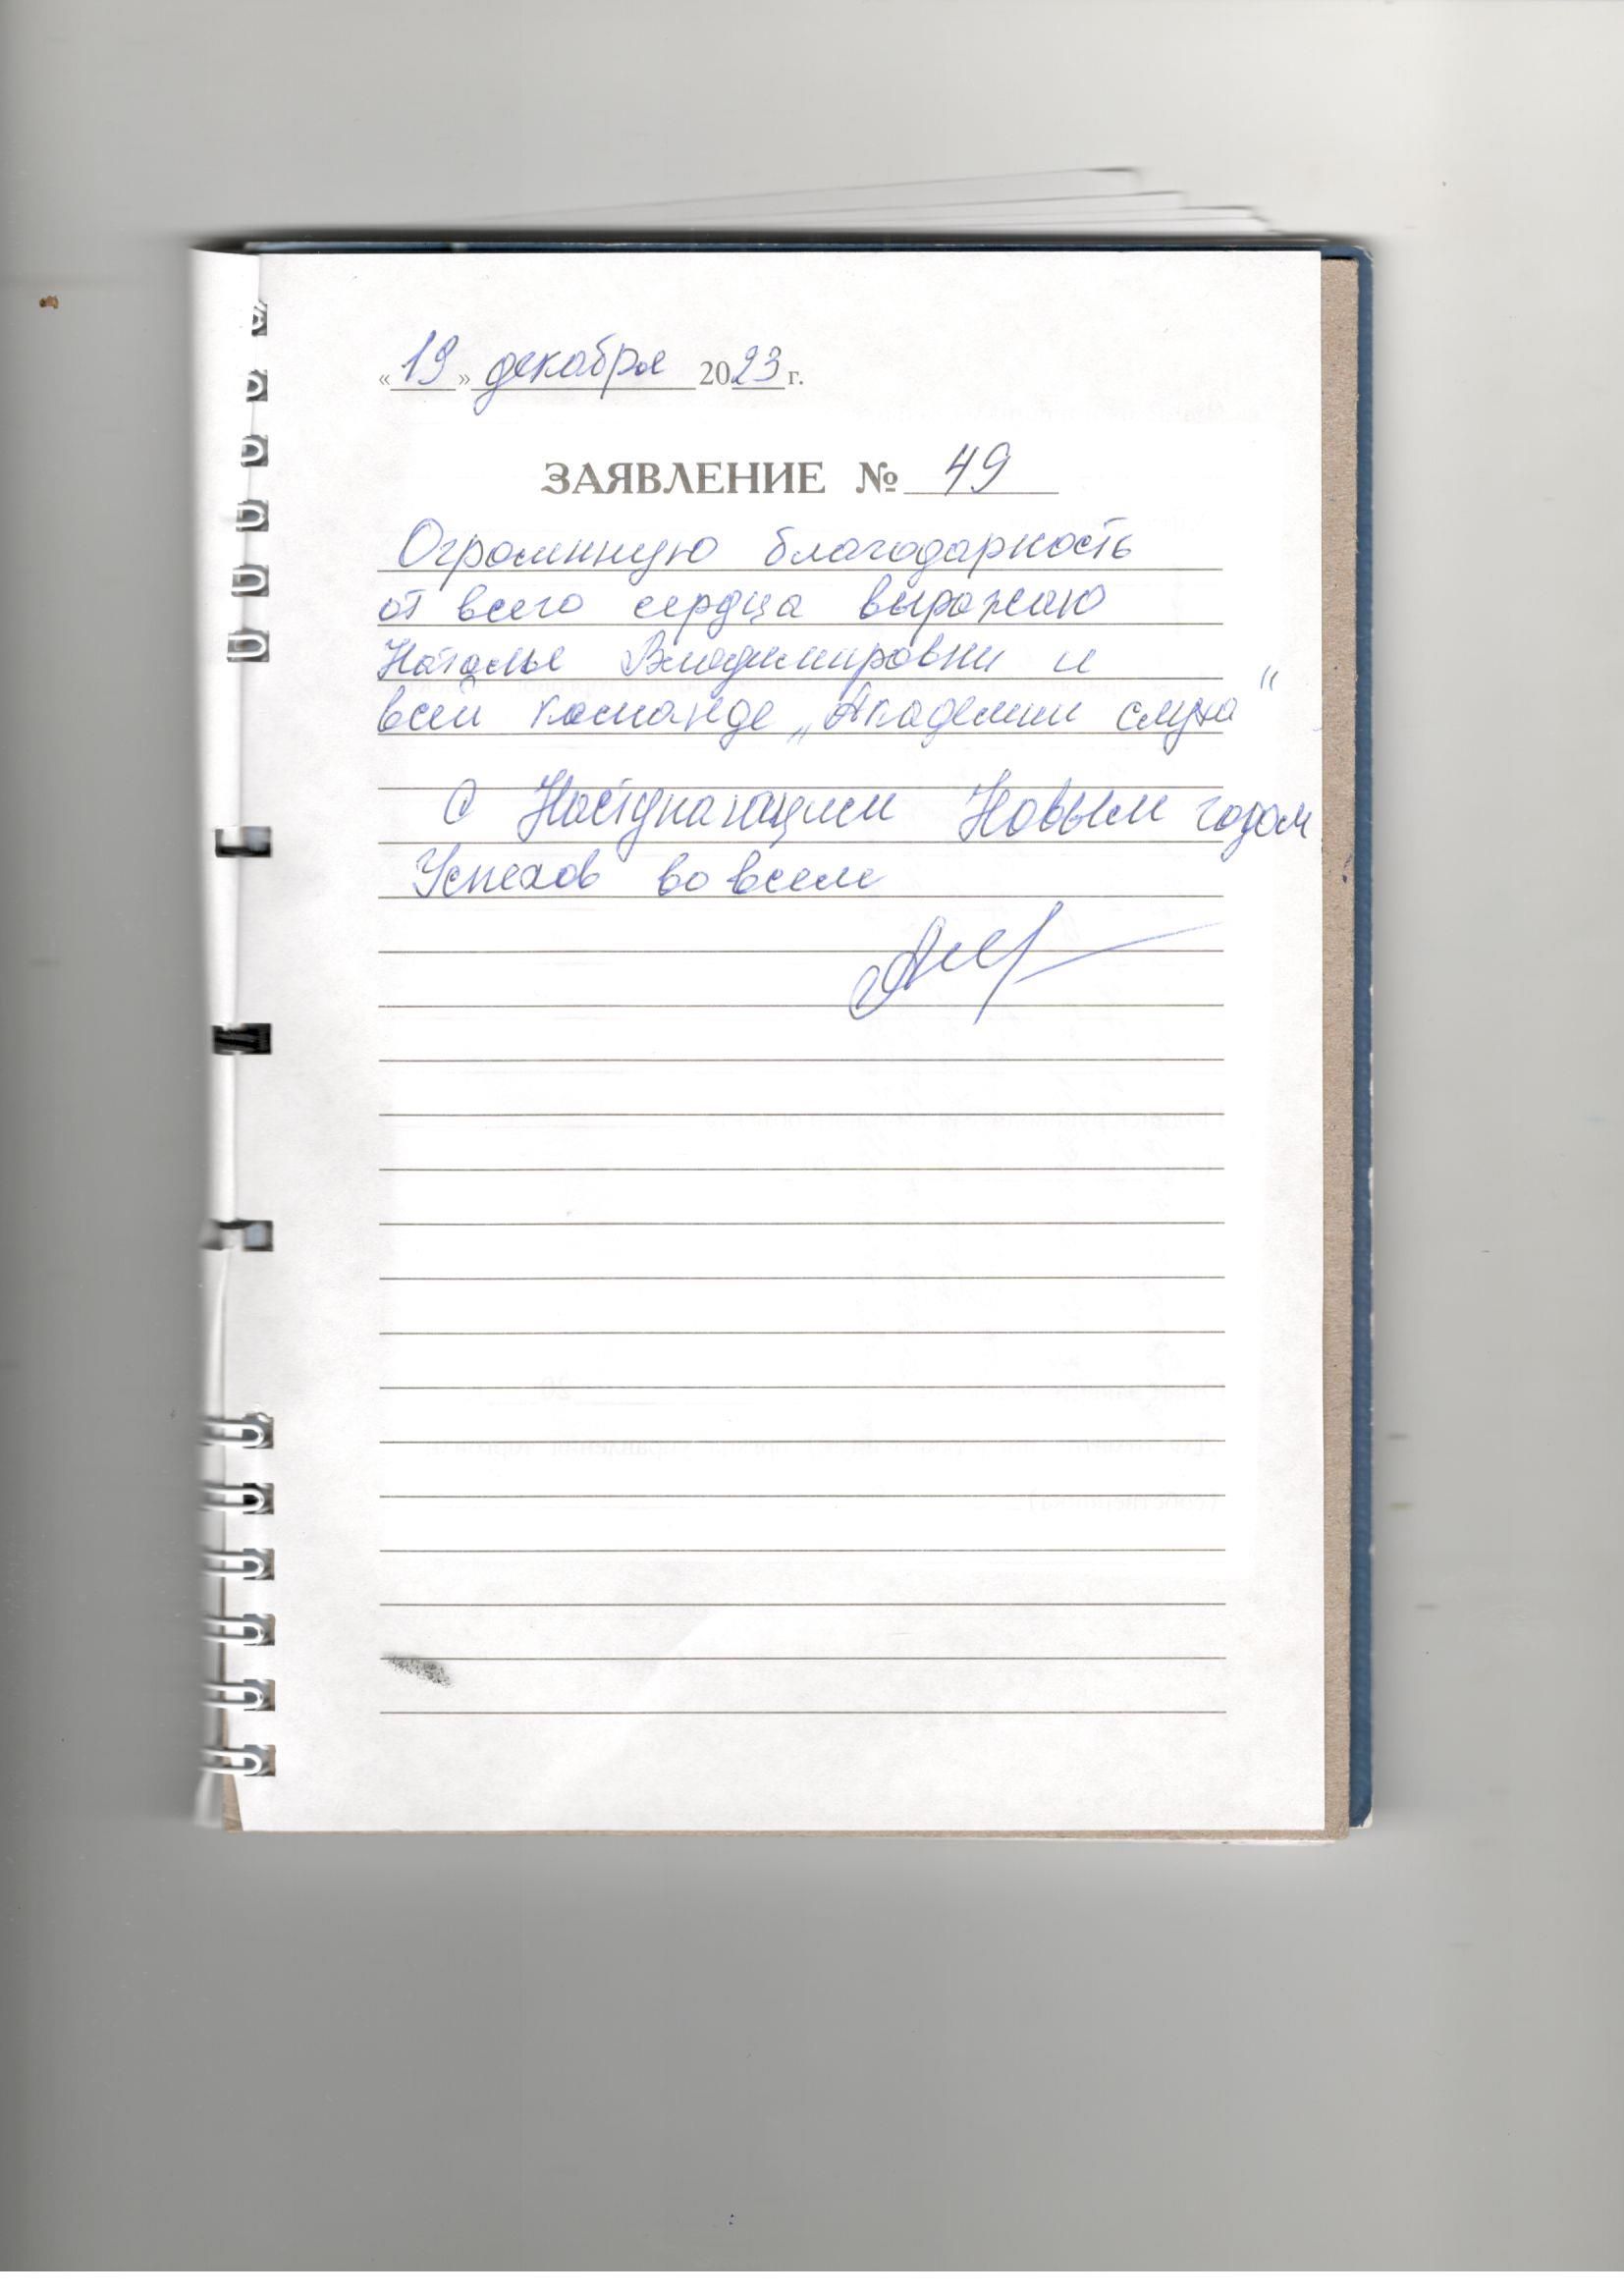 «19» декабря 2023 г.
ЗАЯВЛЕНИЕ № 49
Огромнную благодарность
от всего сердца выражаю
Наталье Владимировни и
всей команде „Академии слуха“
С Наступающим Новым годом
Успехов во всем